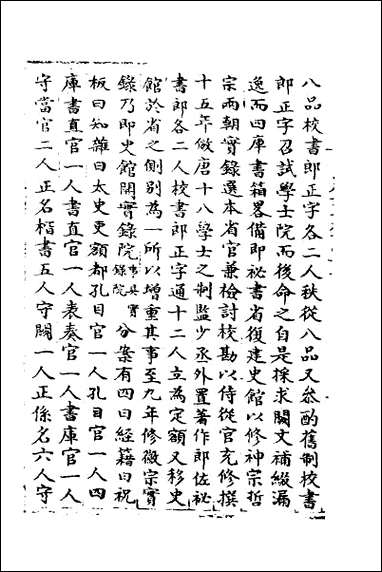 八品校書郎正字各二人秩從八品又叅酌舊制校書
郎正字召試學士院而後命之自是採求闕文補綴漏
逸而四庫書籍畧備即祕書省復建史館以修神宗哲
宗兩朝實錄選本省官兼檢討校勘以侍從官充修撰
十五年倣唐十八學士之制監少丞外置著作郎佐祕
書郎各二人校書郎正字通十二人立為定額又移史
館於省之側别為一所以增重其事至九年修徽宗實
錄乃即史館開實錄院事具實錄院分案有四曰經籍曰祝
板曰知雜曰太史吏額都孔目官一人孔目官一人四
庫書直官一人書直官一人表奏官一人書庫官一人
守當官二人正名楷書五人守闕一人正係名六人守